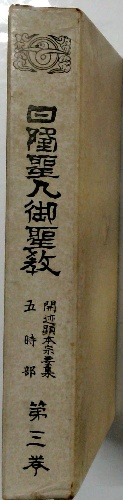 日隆聖人御聖教
開迹顕本宗要集
五時部
第三巻